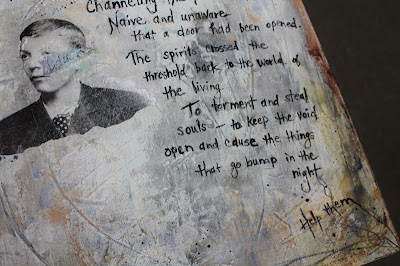 Channeling
Naive and unaware
that a door had been opened.
The spirits crossed the
threshold back to the world of
the living.
To torment and steal
souls - to keep the void
open and cause the things
that go bump in the
night.
Help them